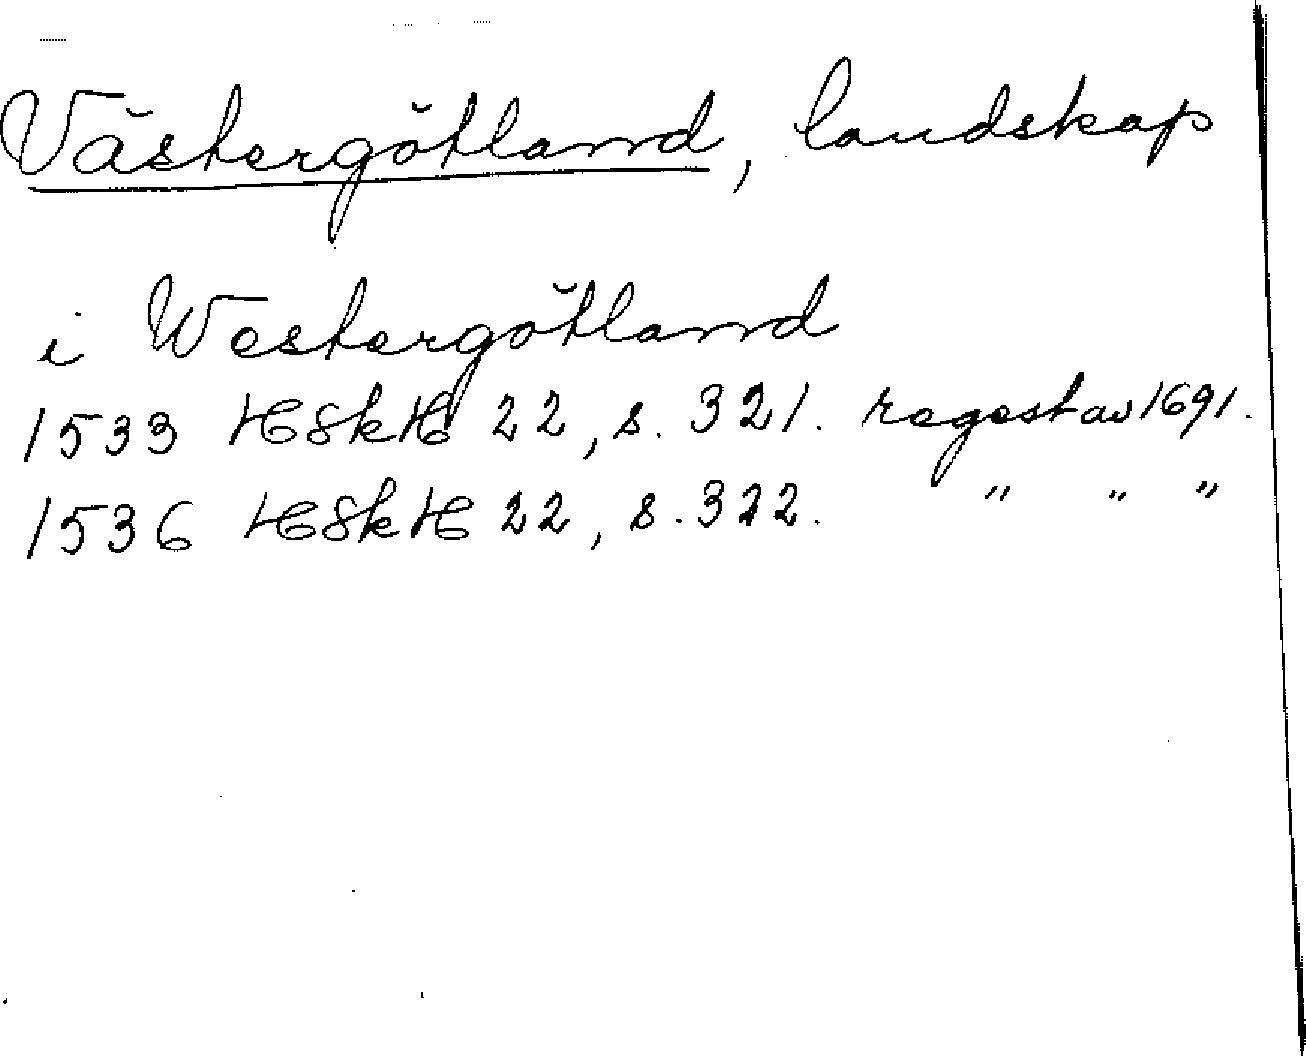 Västergötland, landskap
i Westergötland
1533 HSkH 22, s. 321. regest av 1691.
1536 HSkH 22, s. 322. " " "